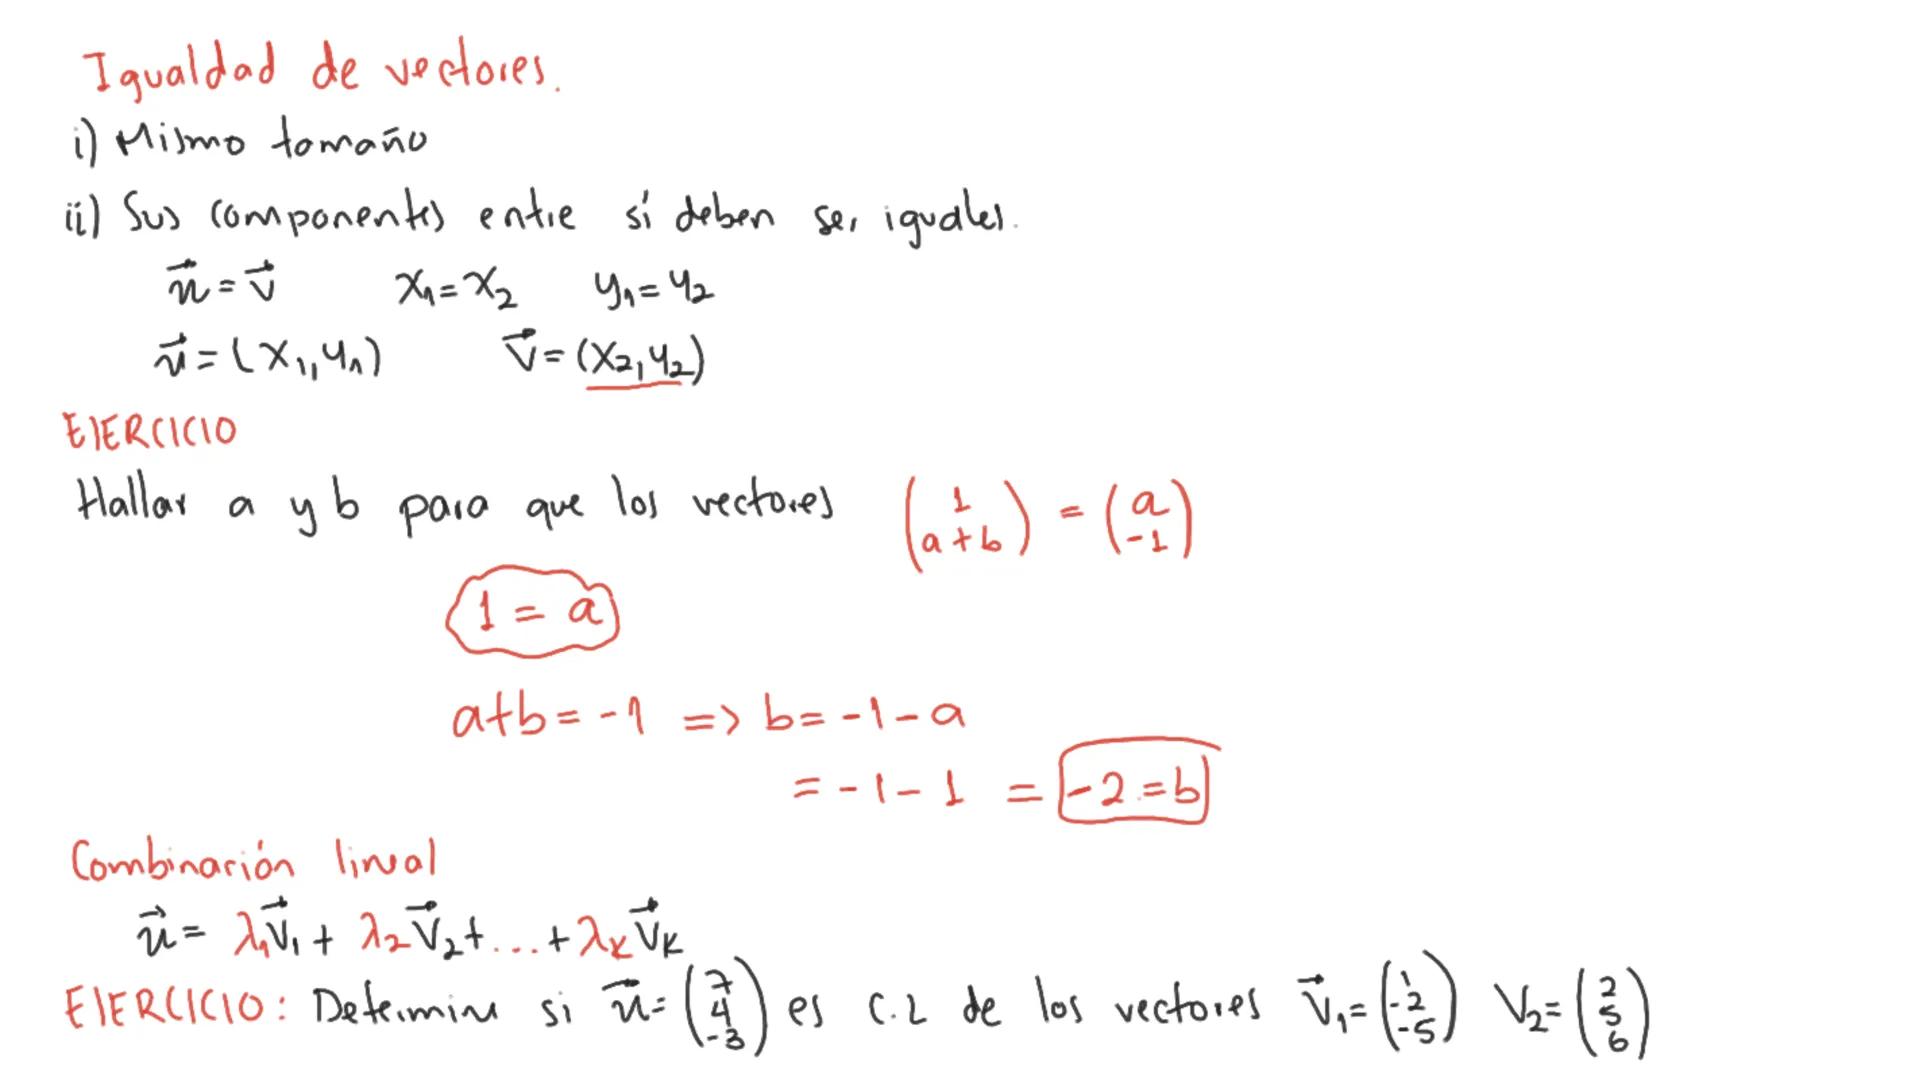 Igualdad de vectores.
i) Mismo tamaño
ii) Sus componentes entre sí deben ser iguales.
u⃗ = v⃗   x₁ = x₂   y₁ = y₂
u⃗ = (x₁, y₁)   v⃗ = (x₂, y₂)
EJERCICIO
Hallar a y b para que los vectores (1, a+b) = (a, -1)
1 = a
a+b = -1 => b = -1 - a
= -1 - 1 = -2 = b
Combinación lineal
u⃗ = λ₁v⃗₁ + λ₂v⃗₂ + ... + λₖv⃗ₖ
EJERCICIO: Determine si u⃗ = (7, 4, -3) es C.L de los vectores v⃗₁ = (1, -2, -5) V₂ = (2, 5, 6)